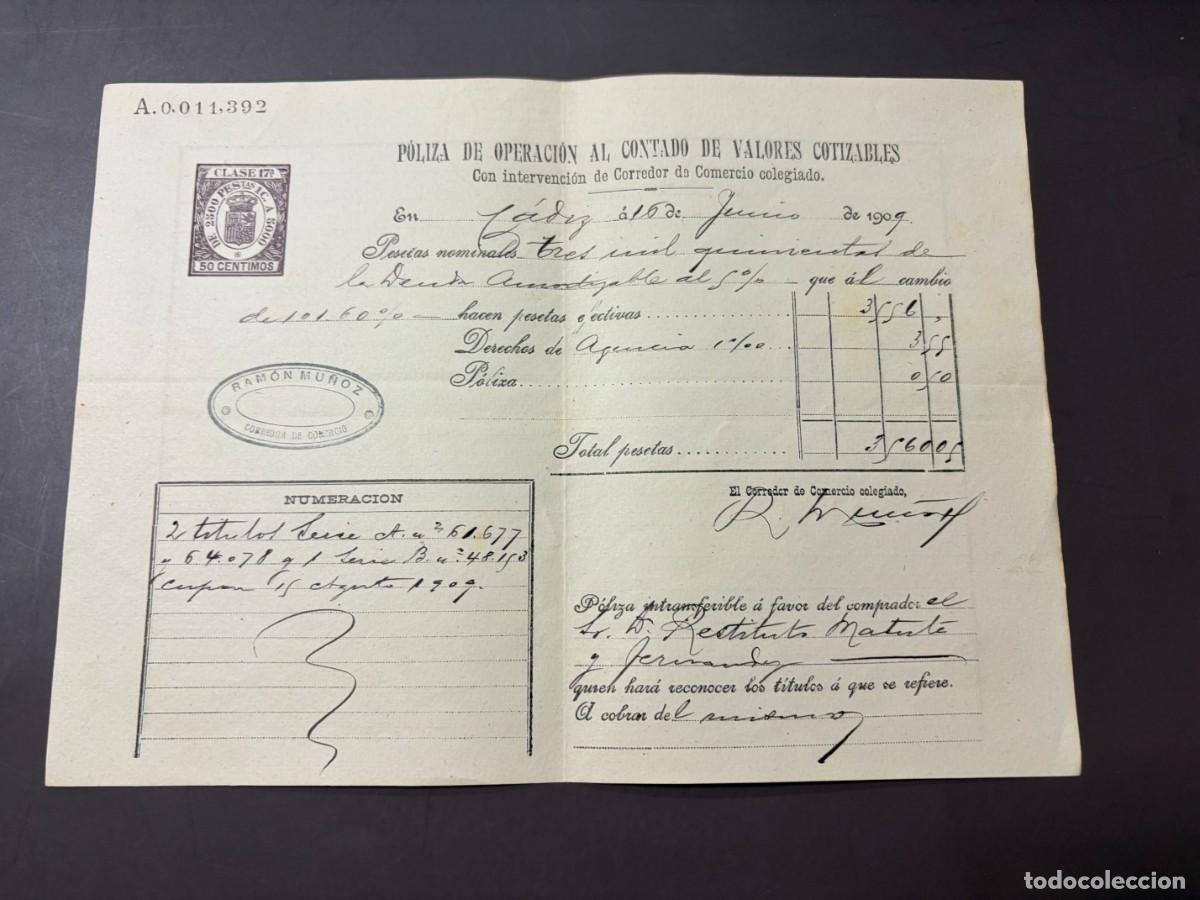 A.0.011,392
PÓLIZA DE OPERACIÓN AL CONTADO DE VALORES COTIZABLES
Con intervención de Corredor de Comercio colegiado.
CLASE 17ª
DE 2500 PESTAS 1 C. A 5000
50 CENTIMOS
En Cádiz á 16 de Junio de 1909.
Pesetas nominales tres mil quinientas de
la Deuda Amortizable al 5% que á l cambio
de 101.60% hacen pesetas efectivas 3556,
Derechos de Agencia 1º/00 3 55
Póliza 0 50
RAMÓN MUÑOZ
CORREDOR DE COMERCIO
Total pesetas 3560 05
El Corredor de Comercio colegiado,
R. Muñoz
NUMERACION
2 titulos Serie A. nº 61.677
y 64.078 y 1 Serie B. nº 48.153
Cupon 15 Agosto 1909.
Póliza intransferible á favor del comprador el
Sr. D. Restituto Matute
y Fernandez
quien hará reconocer los títulos á que se refiere.
A cobrar del mismo
todocoleccion